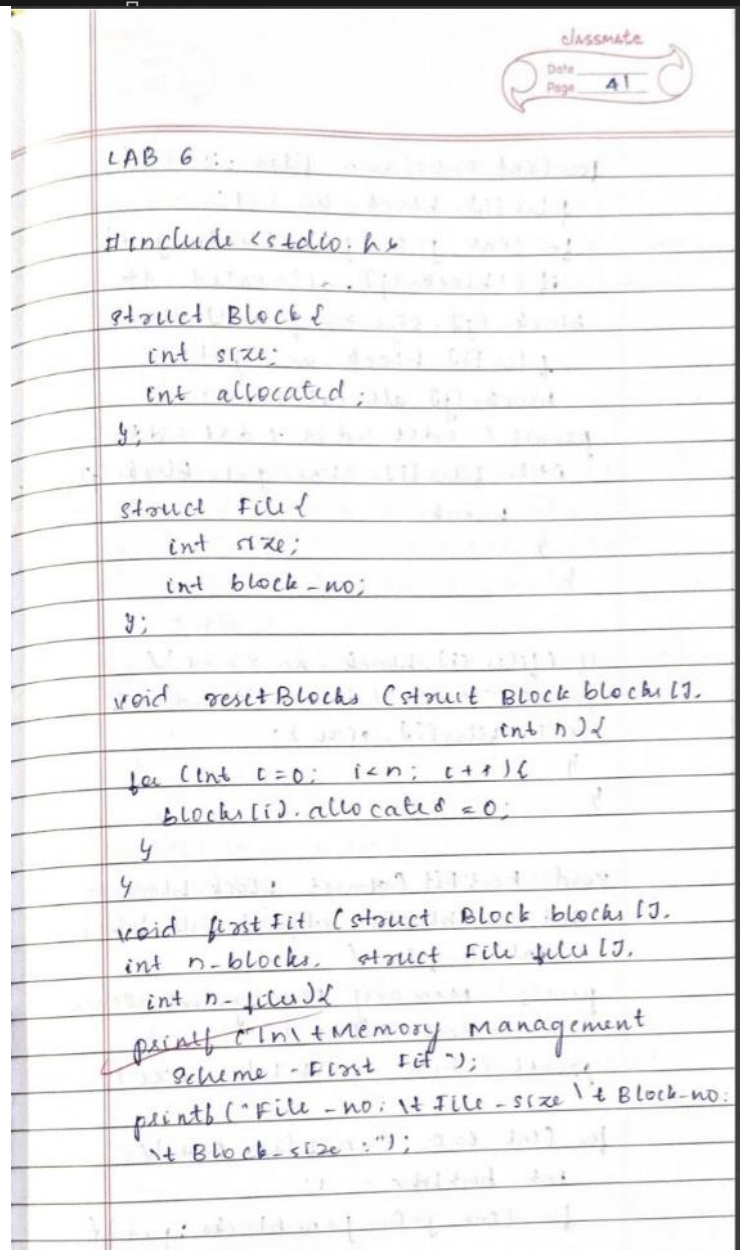 classmate
Date
Page 41
LAB 6 :
#include <stdio.h>
struct Block {
int size;
int allocated;
};
struct File {
int size;
int block_no;
};
void resetBlocks (struct Block blocks [],
int n) {
for (int i=0; i<n; i++) {
blocks[i].allocated = 0;
}
}
void firstFit (struct Block blocks [],
int n_blocks, struct File files [],
int n_files) {
printf ("\n\tMemory Management
Scheme - First Fit ");
printf ("File_no: \t File_size \t Block_no:
\t Block_size :");